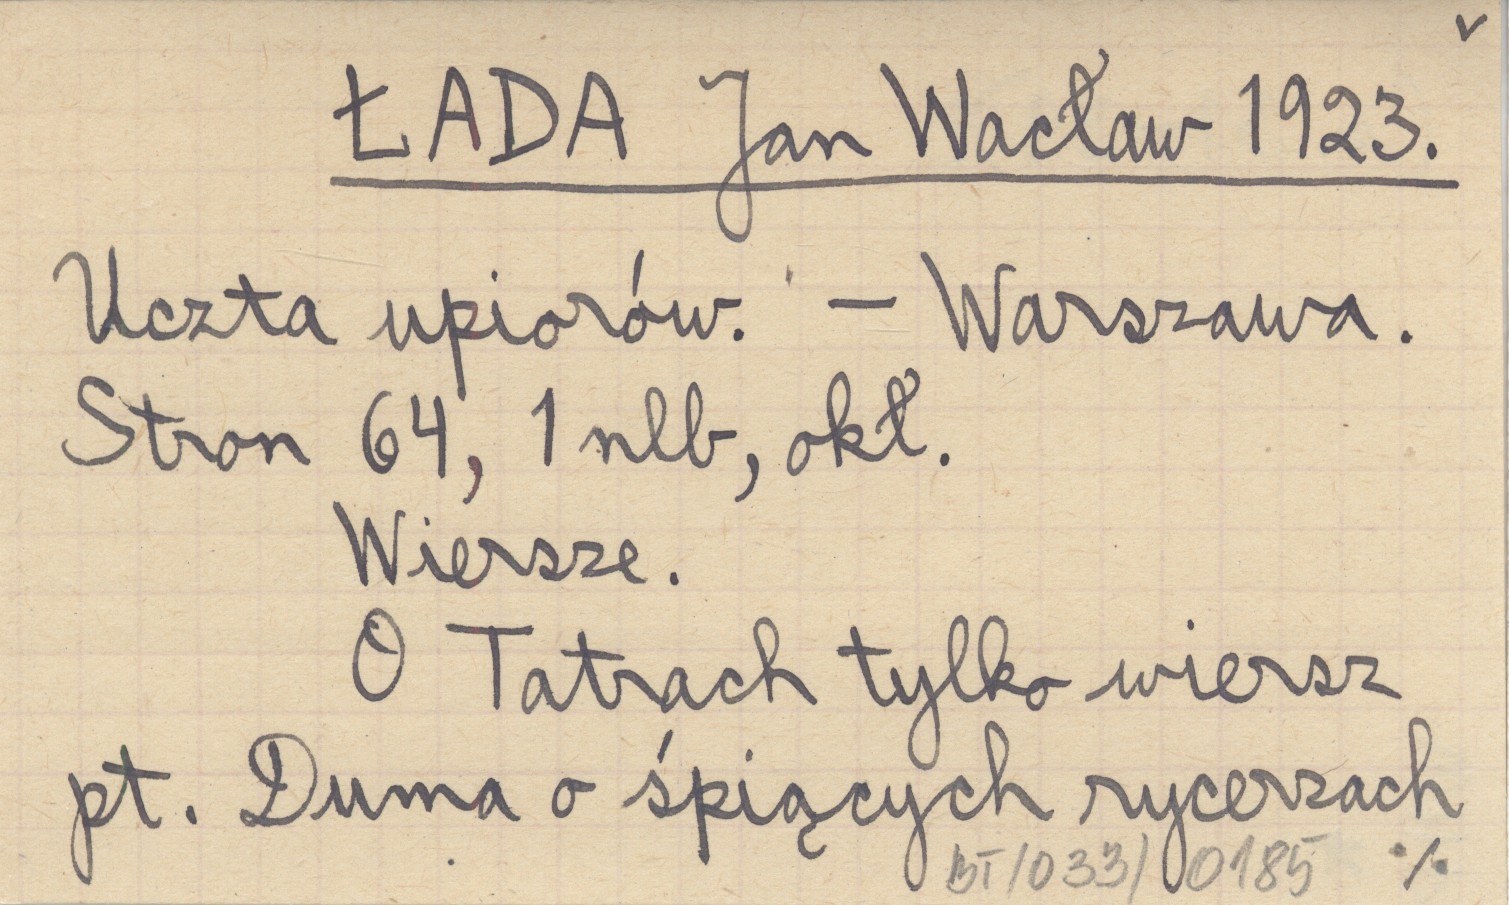 v
ŁADA Jan Wacław 1923.
Uczta upiorów. – Warszawa.
Stron 64, 1 nlb, okł.
Wiersze.
O Tatrach tylko wiersz
pt. Duma o śpiących rycerzach
BT/033/0185 ·/.